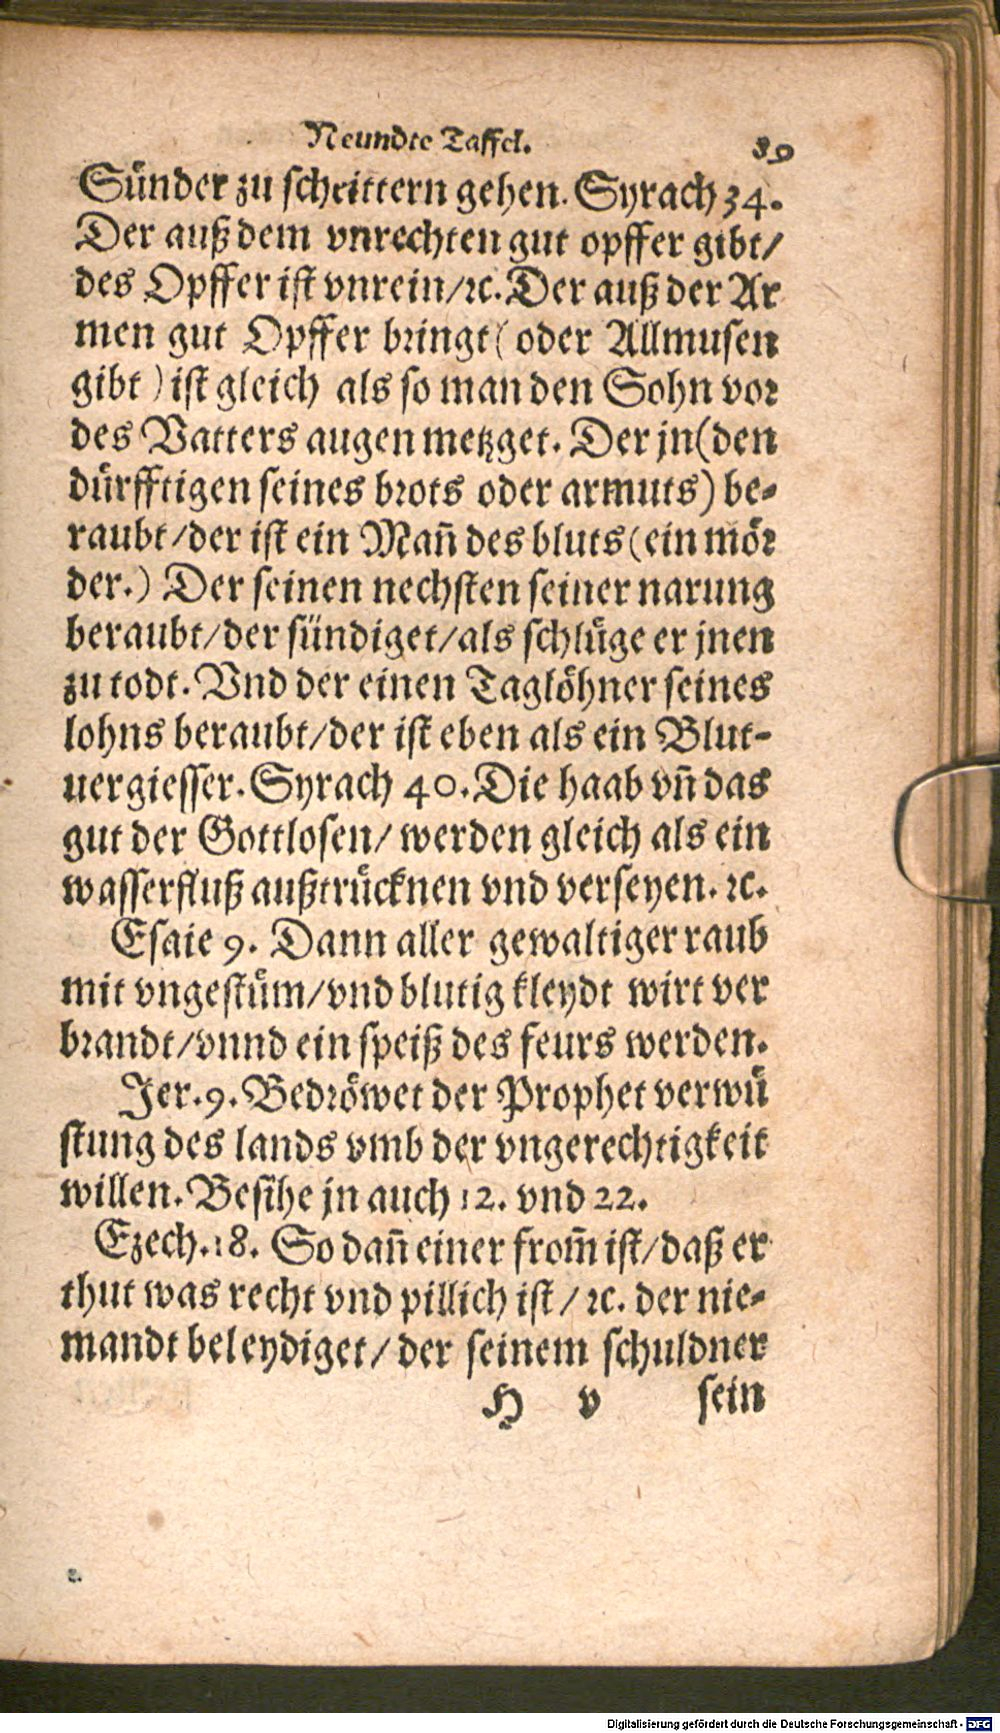 Neundte Taffel. 89
Sünder zu schrittern gehen. Syrach 34.
Der auß dem vnrechten gut opffer gibt/
des Opffer ist vnrein/ ꝛc. Der auß der Ar
men gut Opffer bringt ( oder Allmusen
gibt ) ist gleich als so man den Sohn vor
des Vatters augen metzget. Der jn (den
dürfftigen seines brots oder armuts) be-
raubt/ der ist ein Mañ des bluts (ein mör
der.) Der seinen nechsten seiner narung
beraubt/ der sündiget/ als schlüge er jnen
zu todt. Vnd der einen Taglöhner seines
lohns beraubt/ der ist eben als ein Blut-
uergiesser. Syrach 40. Die haab vñ das
gut der Gottlosen/ werden gleich als ein
wasserfluß außtrücknen vnd verseyen. ꝛc.
Esaie 9. Dann aller gewaltiger raub
mit vngestüm/ vnd blutig kleydt wirt ver
brandt/ vnnd ein speiß des feurs werden.
Jer. 9. Bedröwet der Prophet verwü
stung des lands vmb der vngerechtigkeit
willen. Besihe jn auch 12. vnd 22.
Ezech. 18. So dañ einer from̃ ist/ daß er
thut was recht vnd pillich ist/ ꝛc. der nie-
mandt beleydiget/ der seinem schuldner
H v sein
Digitalisierung gefördert durch die Deutsche Forschungsgemeinschaft - DFG